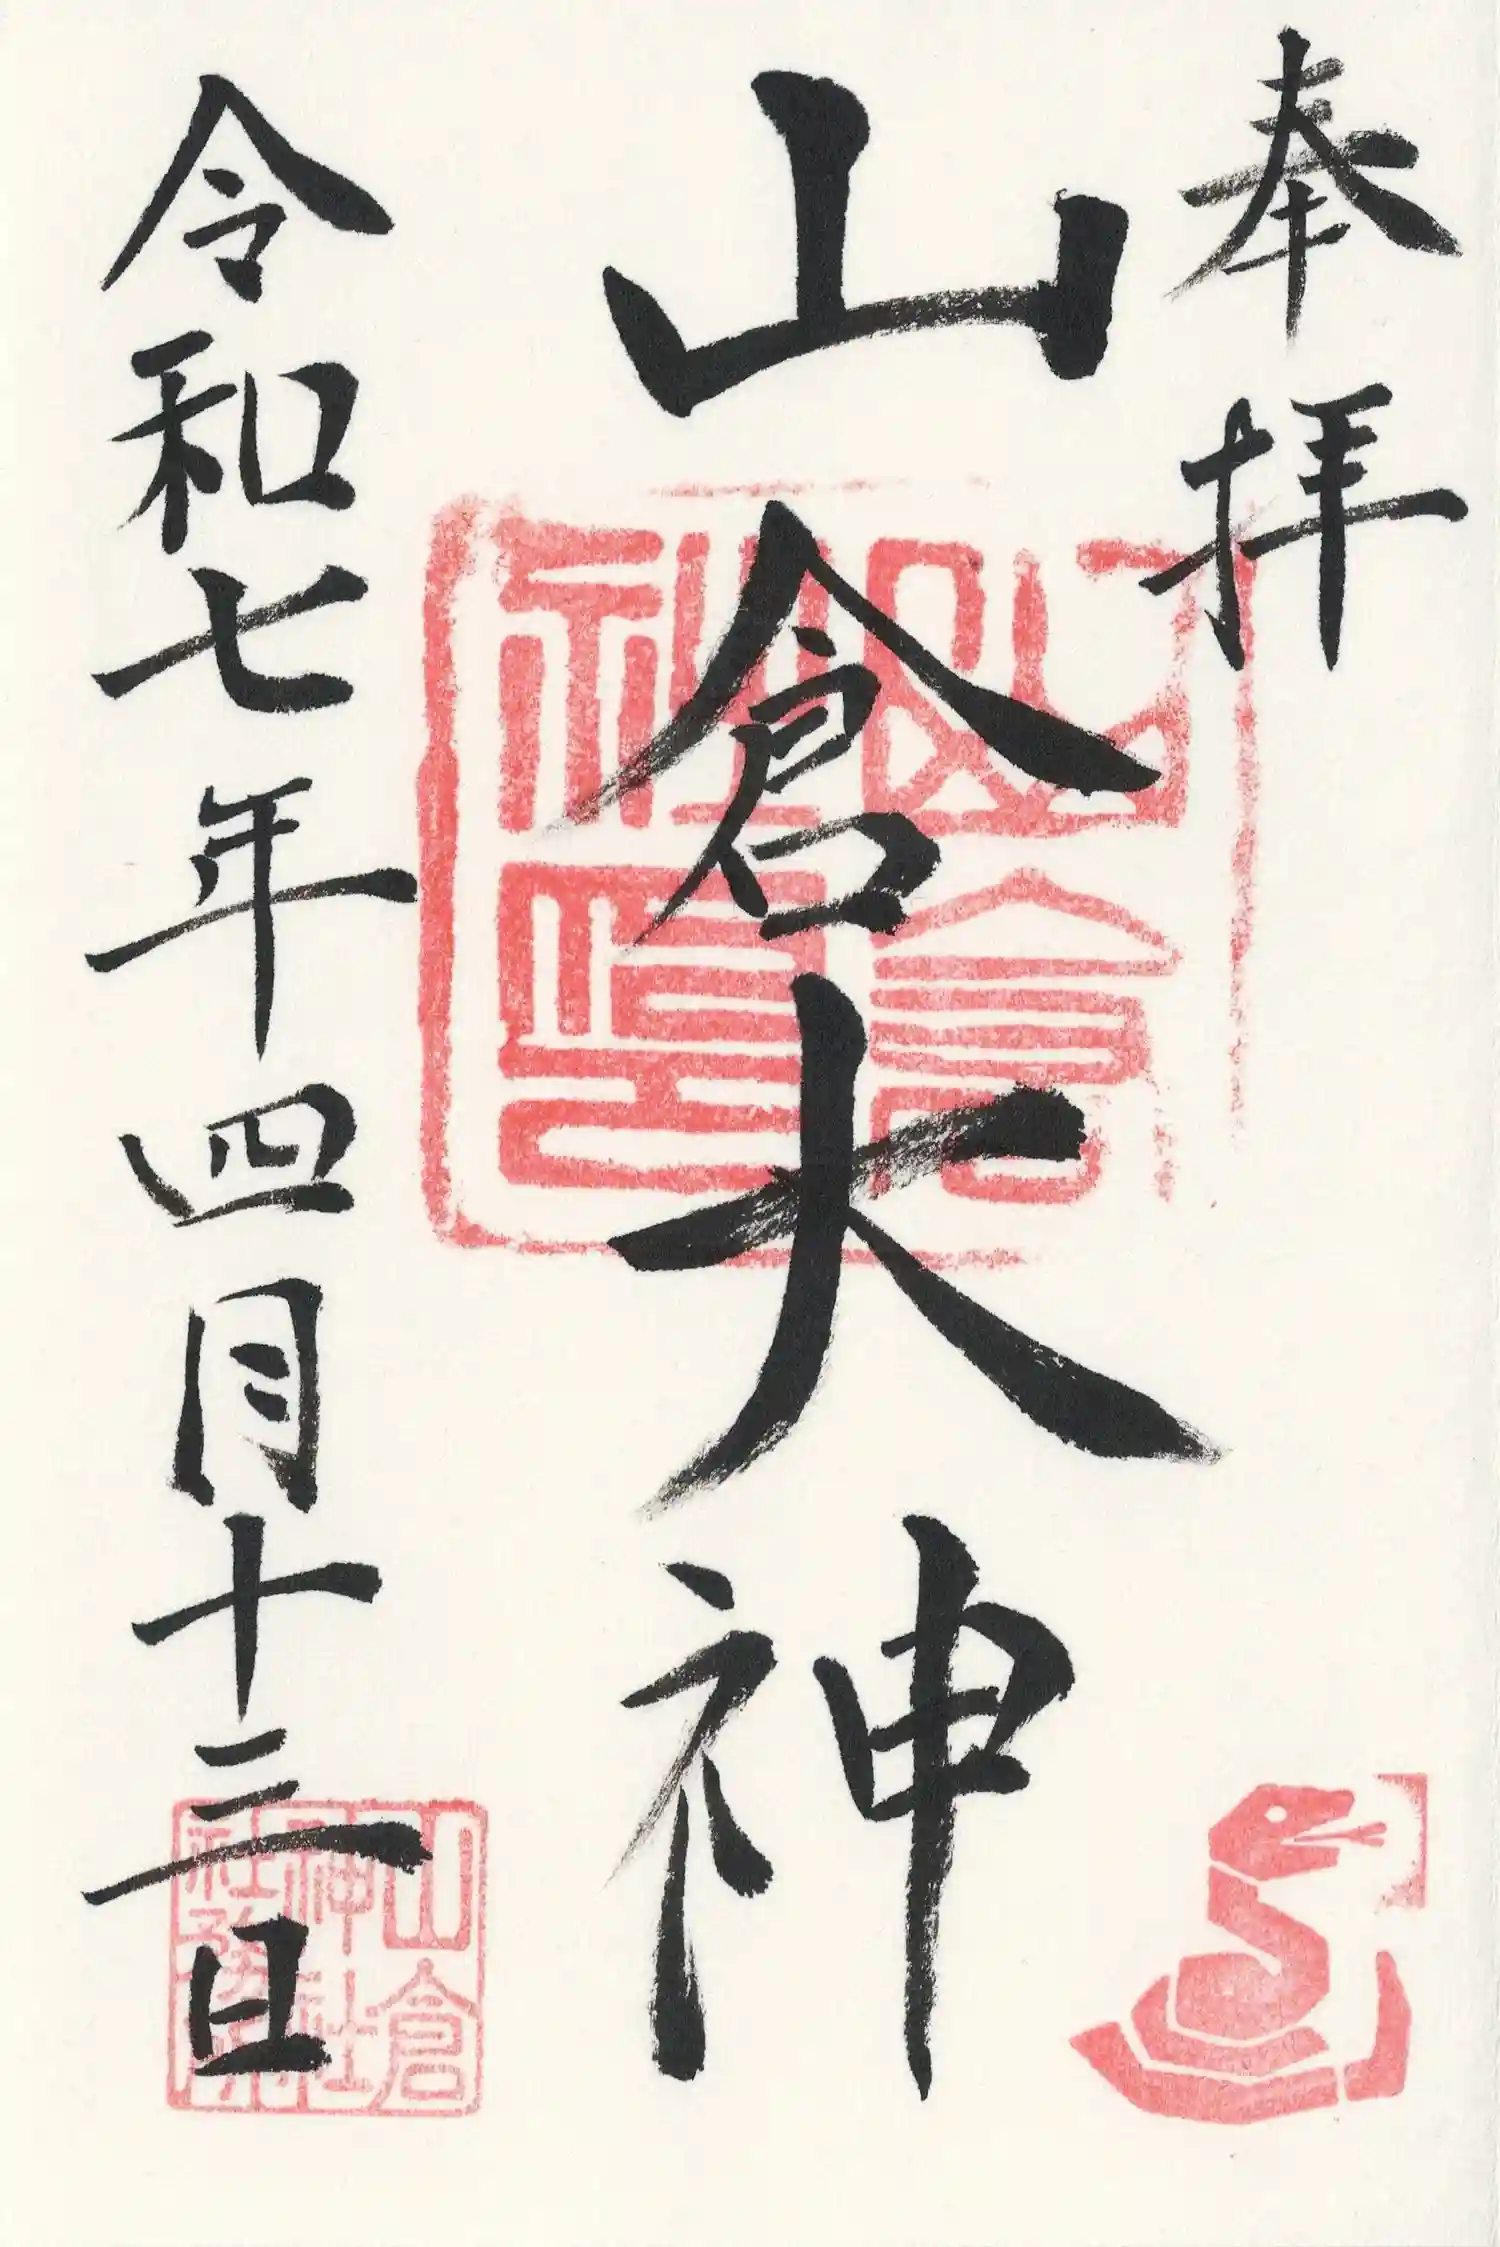 奉拝
山倉大神
令和七年四月十三日
山倉
社印
山倉
神社
社務所